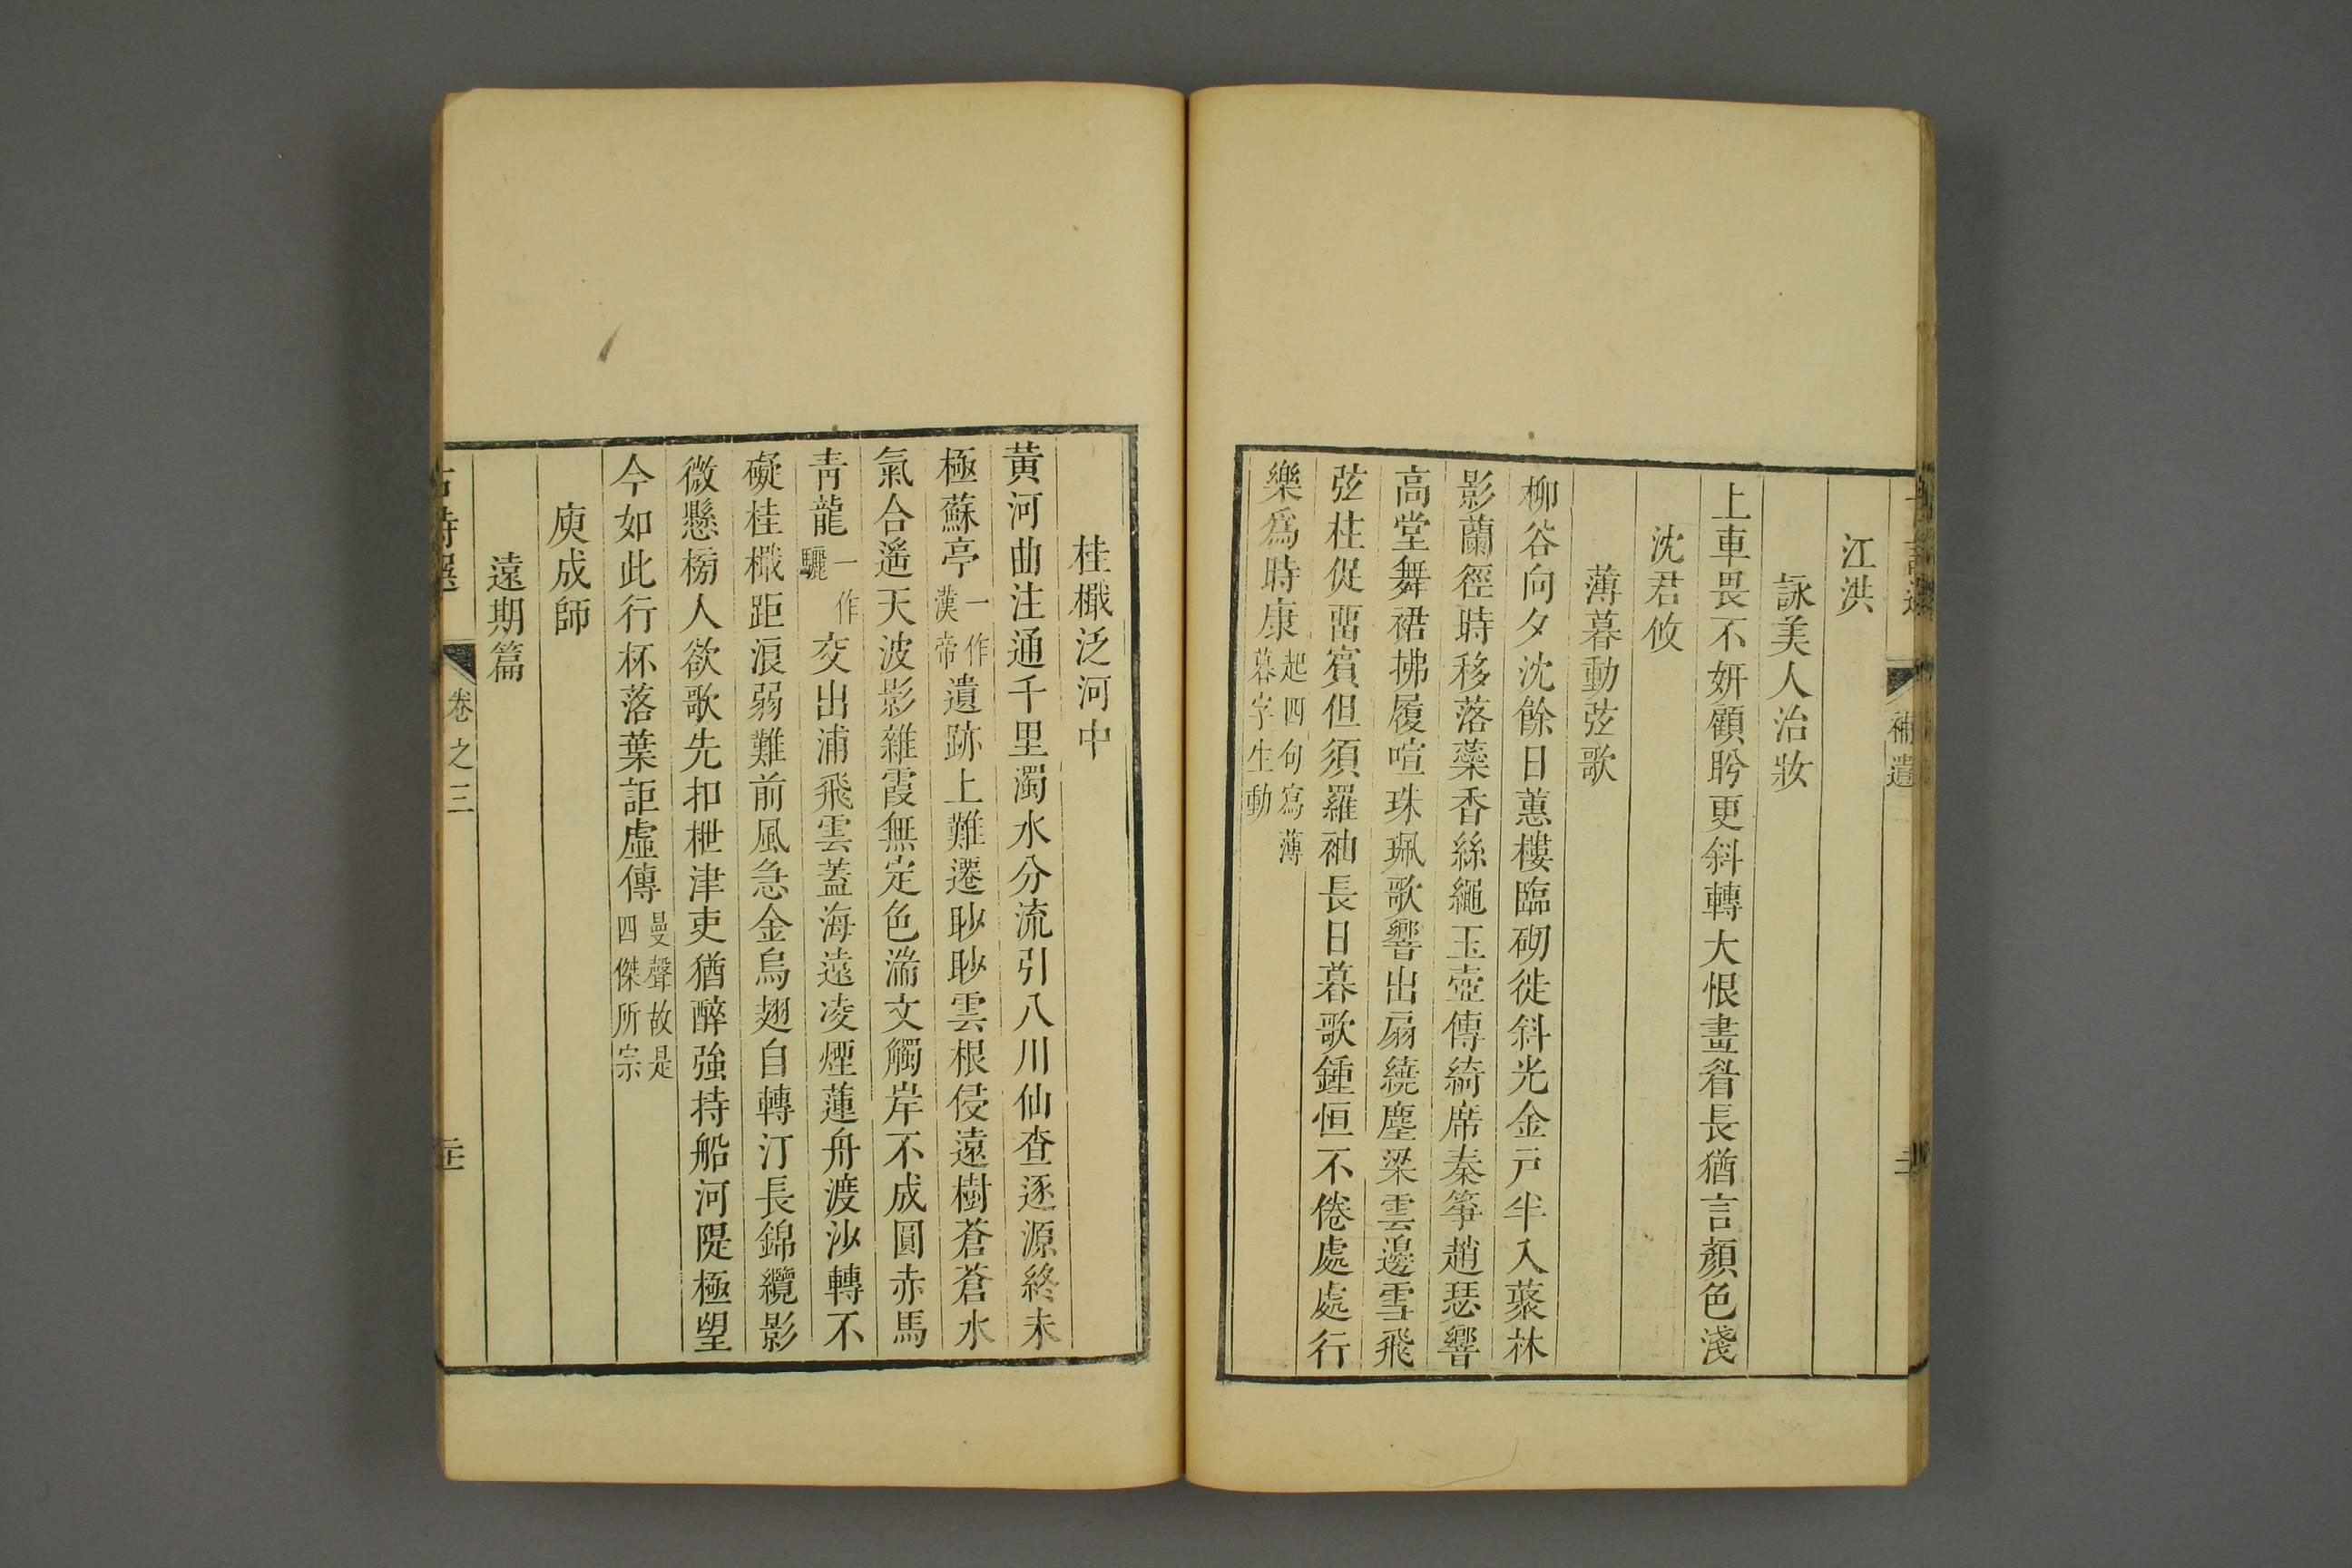 補遺
江洪
詠美人治妝
上車畏不妍顧盻更斜轉大恨畫眉長猶言顏色淺
沈君攸
薄暮動弦歌
柳谷向夕沈餘日蕙樓臨砌徙斜光金戸半入藂林
影蘭徑時移落蘂香絲繩玉壺傳綺席秦筝趙瑟響
高堂舞裙拂履喧珠珮歌響出扇繞塵梁雲邊雪飛
弦柱促畱賓但須羅袖長日暮歌鍾恒不倦處處行
樂爲時康起四句寫薄暮字生動
桂檝泛河中
黃河曲注通千里濁水分流引八川仙查逐源終未
極蘇亭一作漢帝遺跡上難遷眇眇雲根侵遠樹蒼蒼水
氣合遙天波影雜霞無定色湍文觸岸不成圓赤馬
青龍一作驪交出浦飛雲蓋海遠凌煙蓮舟渡沙轉不
礙桂檝距浪弱難前風急金烏翅自轉汀長錦纜影
微懸榜人欲歌先扣枻津吏猶醉強持船河隄極望
今如此行杯落葉詎虛傳曼聲故是四傑所宗
庾成師
遠期篇
古詩選 卷之三